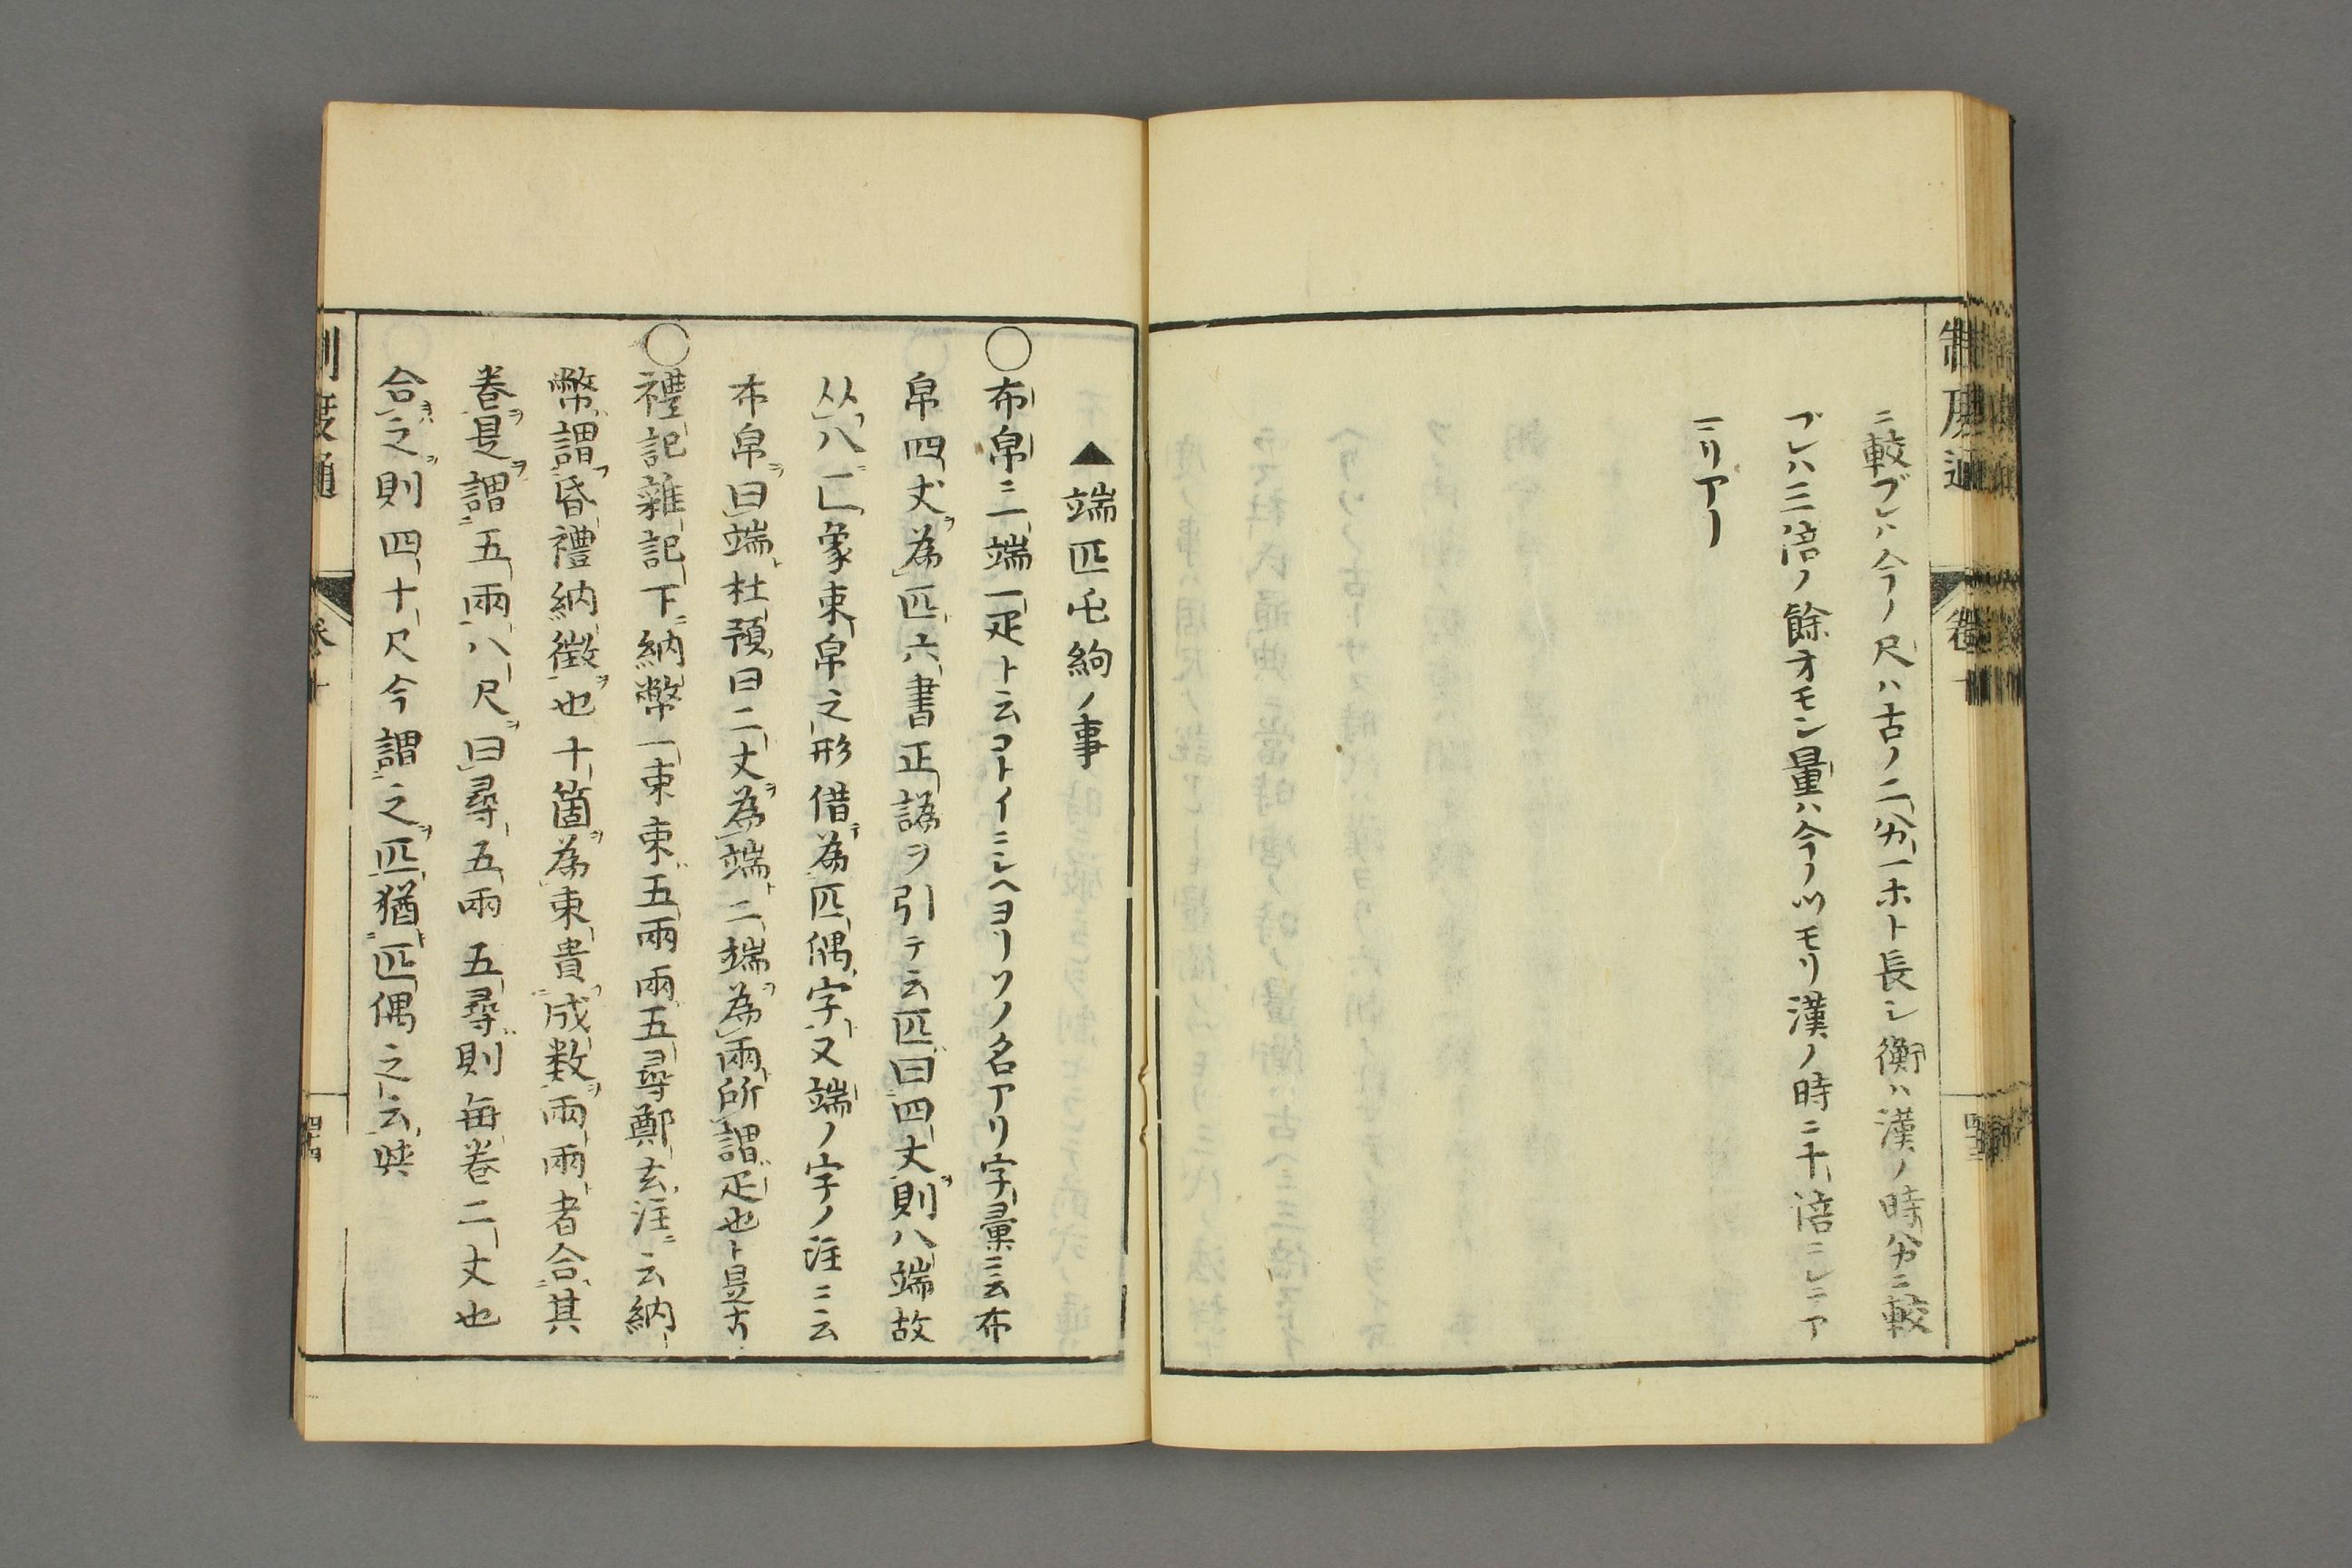 制度通
卷十
ニ較ブレハ今ノ尺ハ古ノ二分一ホト長シ衡ハ漢ノ時分ニ較
ブレハ三倍ノ餘オモシ量ハ今ノツモリ漢ノ時ニ十倍ニシテ
▲端匹屯絇ノ事
○布帛ニ端一疋ト云コトイニシヘヨリソノ名アリ字彙ニ云布
帛四丈為匹六書正譌ヲ引テ云匹曰四丈則八端故
从八匸象束帛之形借為匹偶字又端ノ字ノ注ニ云
布帛曰端杜預曰二丈為端二端為兩所謂疋也ト是古
○禮記雜記下納幣一束束五兩兩五尋鄭玄注云納
幣謂昏禮納徴也十箇為束貴成数兩兩者合其
卷是謂五兩八尺曰尋五兩五尋則每卷二丈也
合之則四十尺今謂之匹猶匹偶之云與
制度通
卷十
四十四